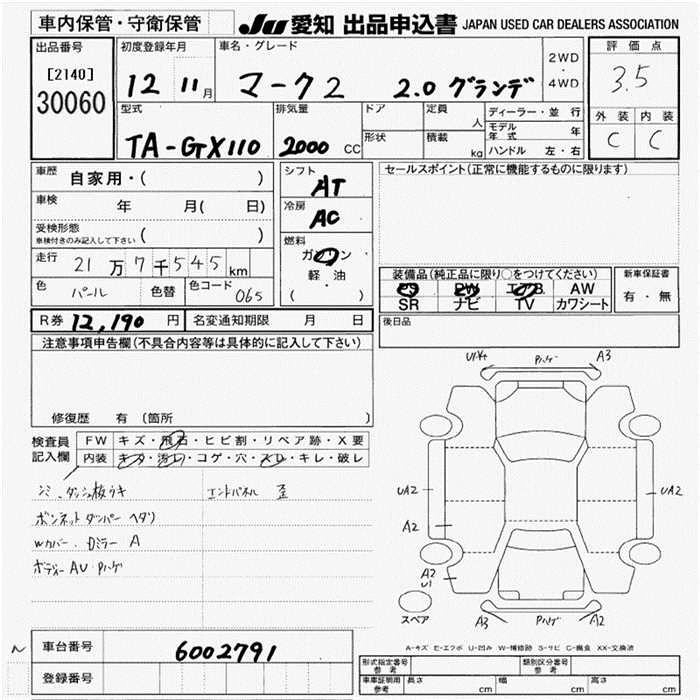 車内保管・守衛保管
JU 愛知 出品申込書 JAPAN USED CAR DEALERS ASSOCIATION
出品番号
[2140]
30060
初度登録年月
12 11月
車名・グレード
マーク2 2.0 グランデ
2WD
・
4WD
評価点
3.5
外装 内装
C C
型式
TA-GX110
排気量
2000 CC
ドア
形状
定員
人
積載
kg
ディーラー・並行
モデル年式 年
ハンドル 左・右
車歴
自家用・( )
車検
年 月( 日)
受検形態
車検付きのみ記入して下さい ( )
走行
21万7千545km
色 パール
色替
色コード 065
シフト
AT
冷房
AC
燃料
ガソリン
軽・油
( )
セールスポイント(正常に機能するものに限ります)
装備品(純正品に限り○をつけてください)
PS PW エアB AW
SR ナビ TV カワシート
新車保証書
有・無
R券 12,190 円
名変通知期限 月 日
後日品
注意事項申告欄(不具合内容等は具体的に記入して下さい)
修復歴 有 (箇所 )
検査員
記入欄
FW キズ・飛石・ヒビ割・リペア跡・X要
内装 キズ・汚レ・コゲ・穴・スレ・キレ・破レ
シミ.ダッシュ板ウキ
エンドパネル 歪
ボンネットダンパー ヘタリ
Wカバー.Dミラー A
ボディー AU・Pハゲ
U1キ Pハゲ A3
UA2
UA2
A2
A2
U1
スペア
A3 Pハゲ A2
A-キズ E-エクボ U-凹み W-補修跡 S-サビ C-腐食 XX-交換済
車台番号
6002791
登録番号
形式指定番号
参考
類別区分番号
参考
車庫証明用
参考
長さ cm
幅 cm
高さ cm